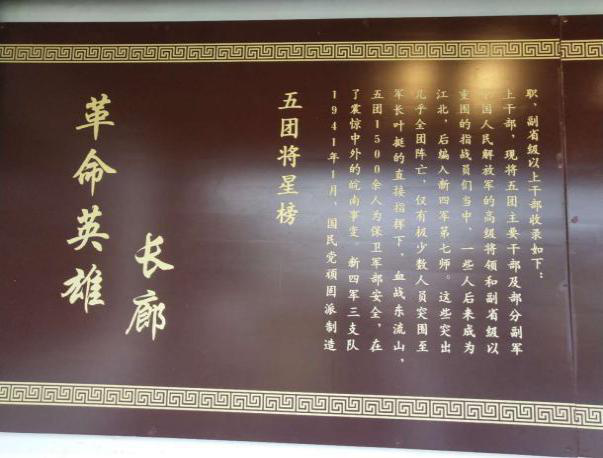 革命英雄
长廊
五团将星榜
1941年1月，国民党顽固派制造
了震惊中外的皖南事变。新四军三支队
五团1500余人为保卫军部安全，在
军长叶挺的直接指挥下，血战东流山，
几乎全团阵亡，仅有极少数人员突围至
江北，后编入新四军第七师。这些突出
重围的指战员们当中，一些人后来成为
中国人民解放军的高级将领和副省级以
上干部，现将五团主要干部及部分副军
职、副省级以上干部收录如下：